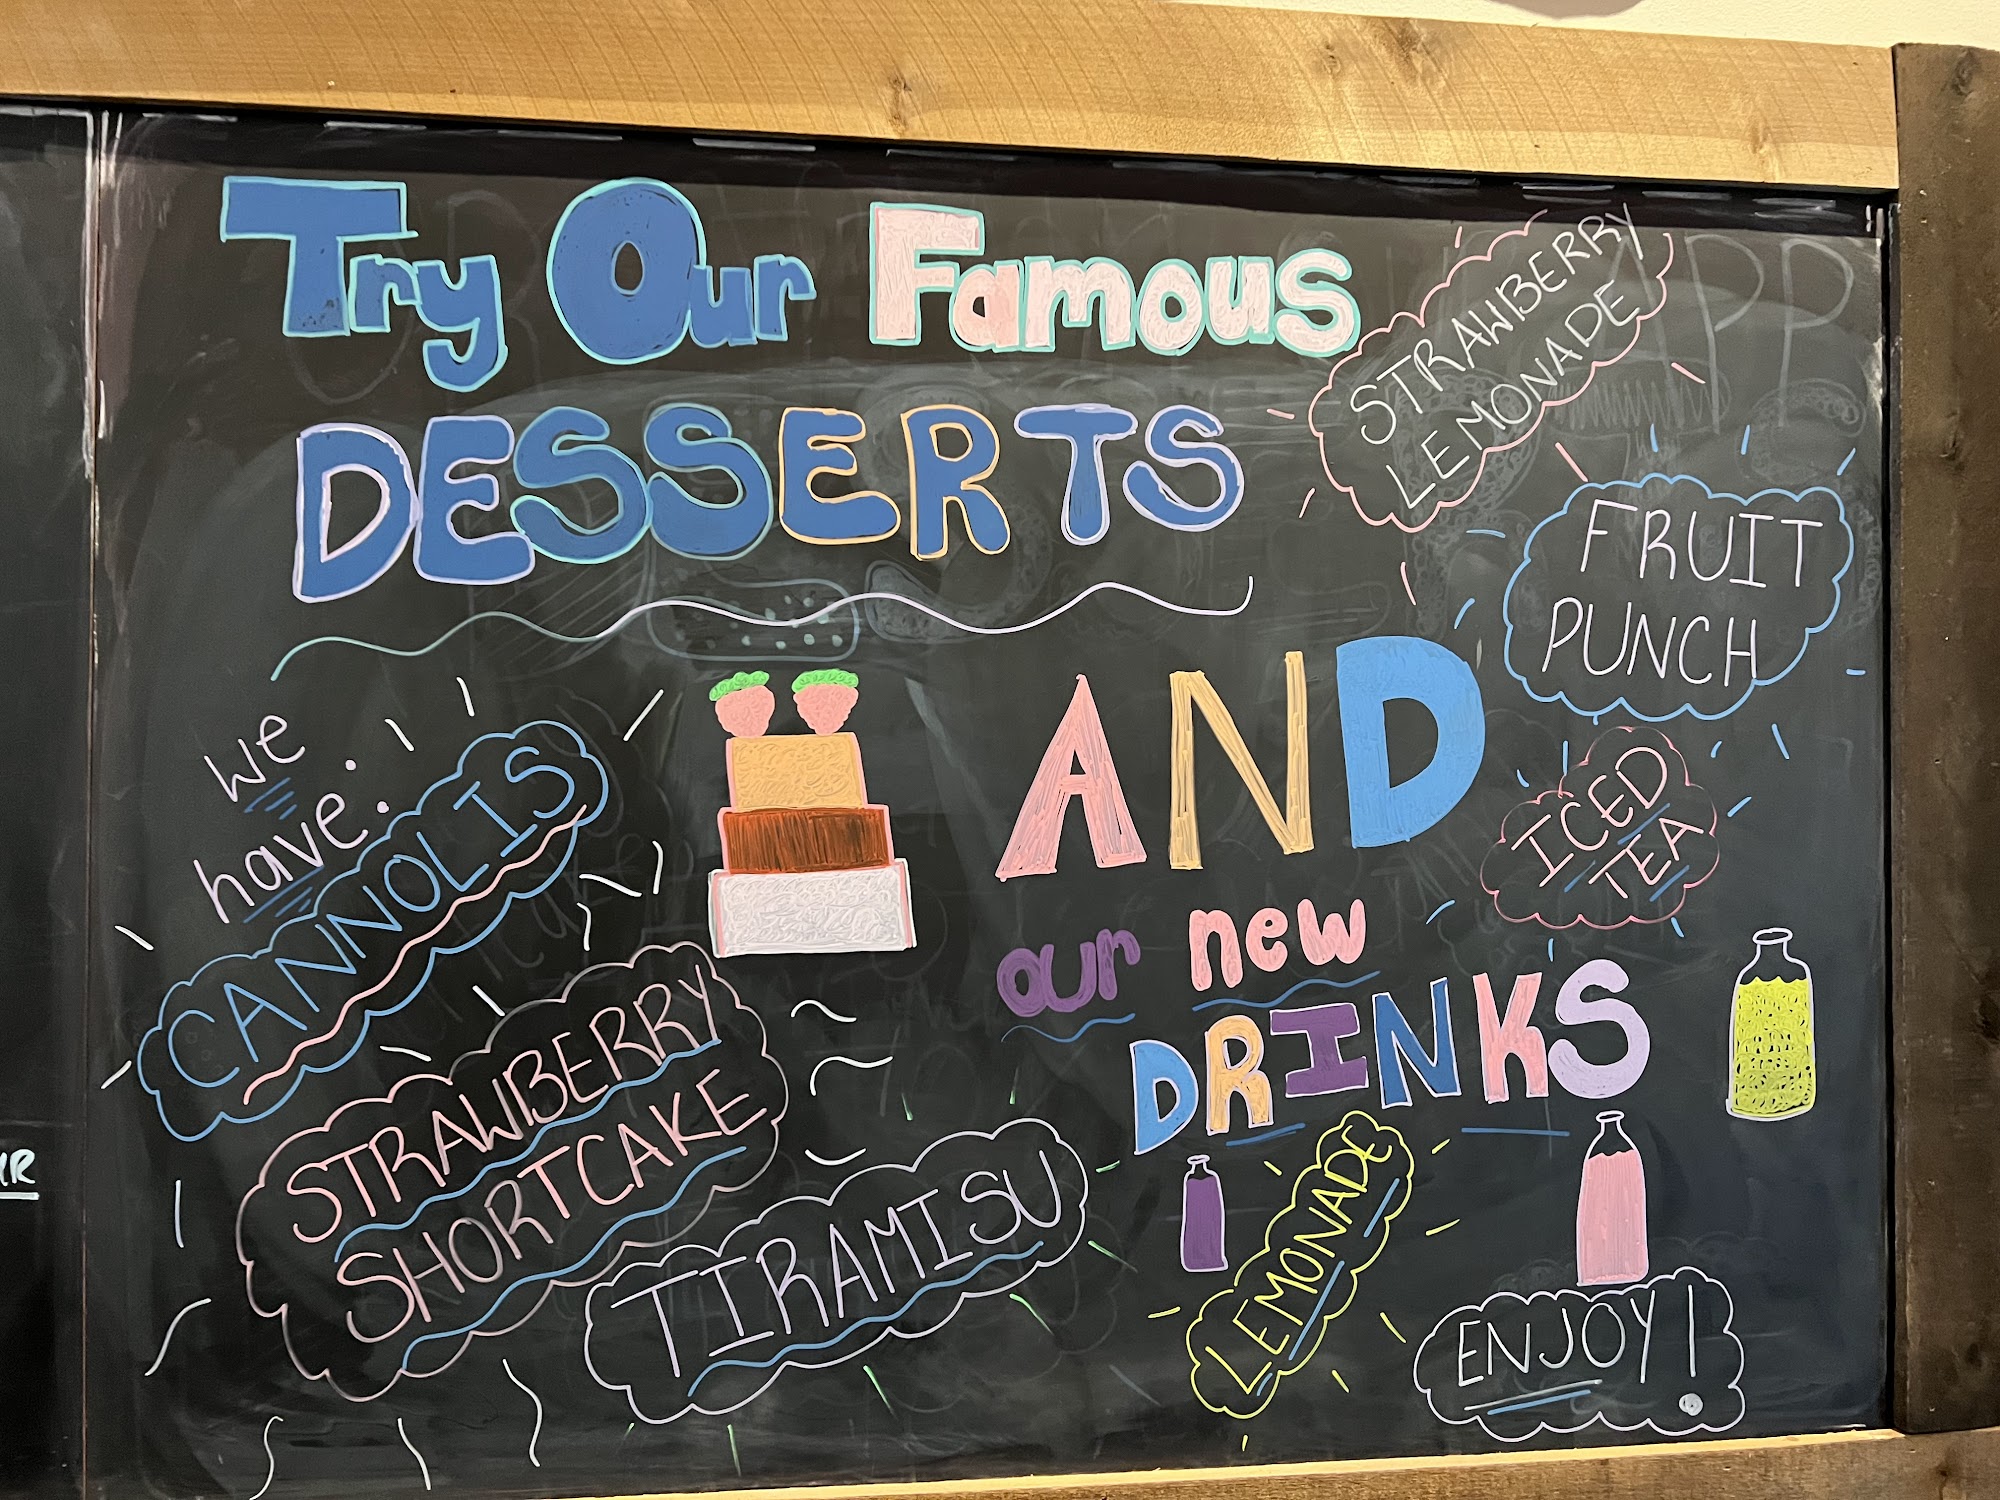 Try Our Famous
DESSERTS
we
have:
CANNOLIS
STRAWBERRY
SHORTCAKE
TIRAMISU
AND
our new
DRINKS
STRAWBERRY
LEMONADE
FRUIT
PUNCH
ICED
TEA
LEMONADE
ENJOY!